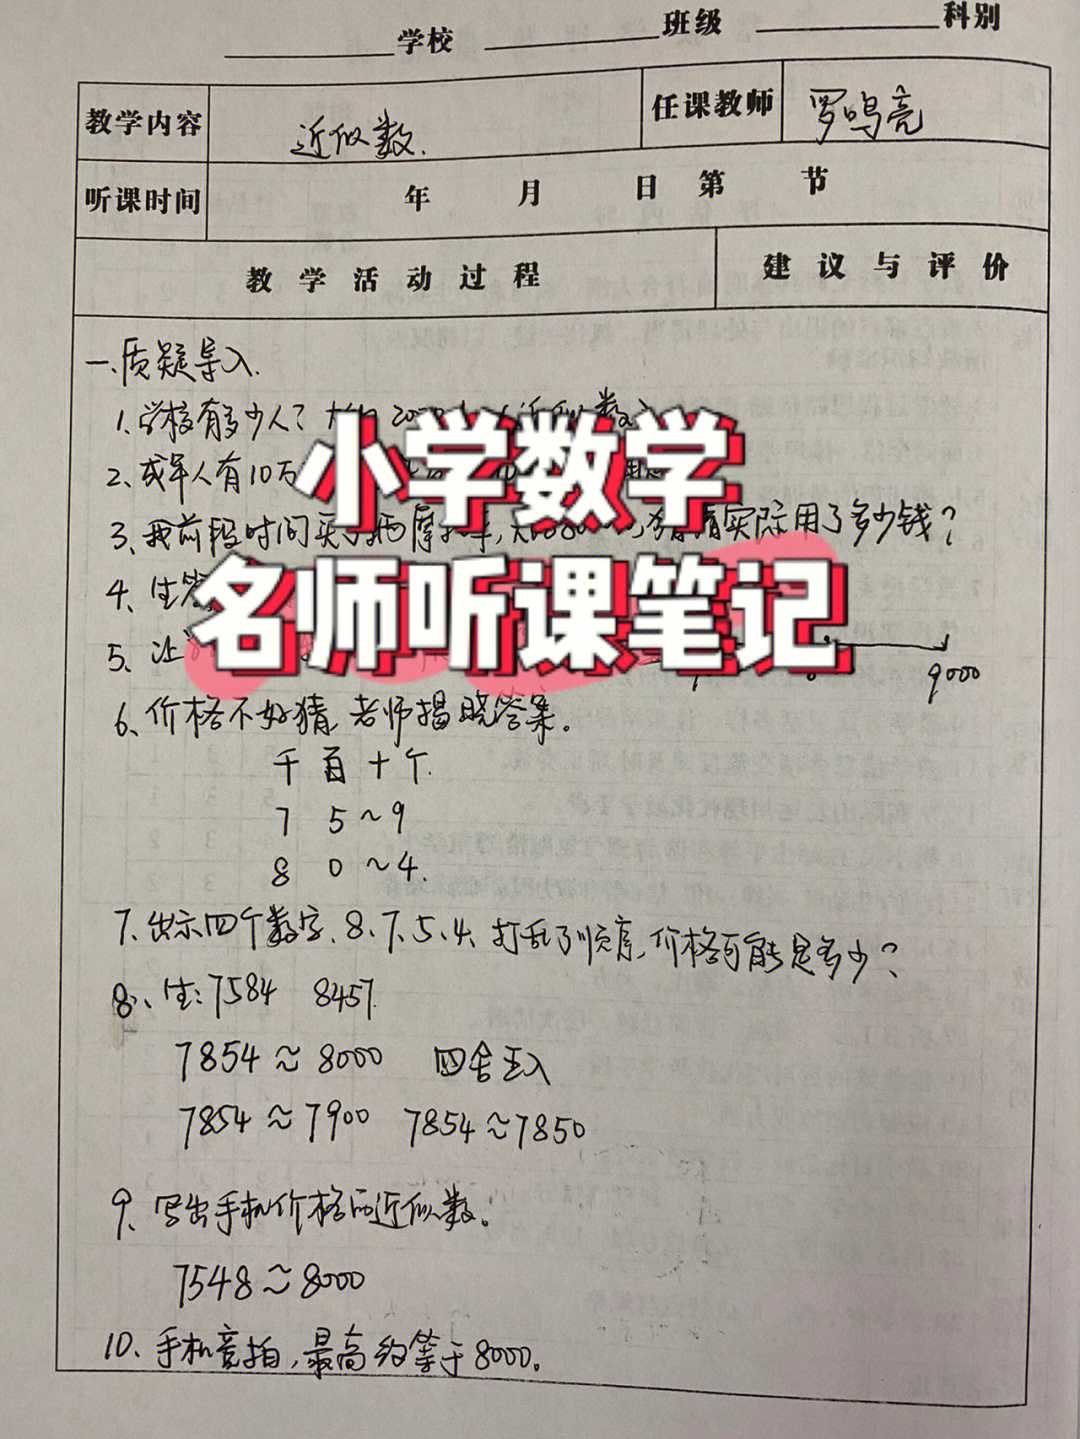 学校 班级 科别
教学内容 近似数. 任课教师 罗鸣亮
听课时间 年 月 日 第 节
教学活动过程 建议与评价
一.质疑导入.
1.学校有多少人?
小学数学
2、成年人有10万
3、我前段时间买了 实际用了多少钱?
名师听课笔记
4、生
5、让
9000
6、价格不好猜,老师揭晓答案。
千 百 十 个.
7 5~9
8 0~4.
7、出示四个数字、8、7、5、4、打乱了顺序,价格可能是多少?
8、生:7584 8457.
7854≈8000 四舍五入
7854≈7900 7854≈7850
9、写出手机价格的近似数。
7548≈8000
10、手机竞拍,最高约等于8000。